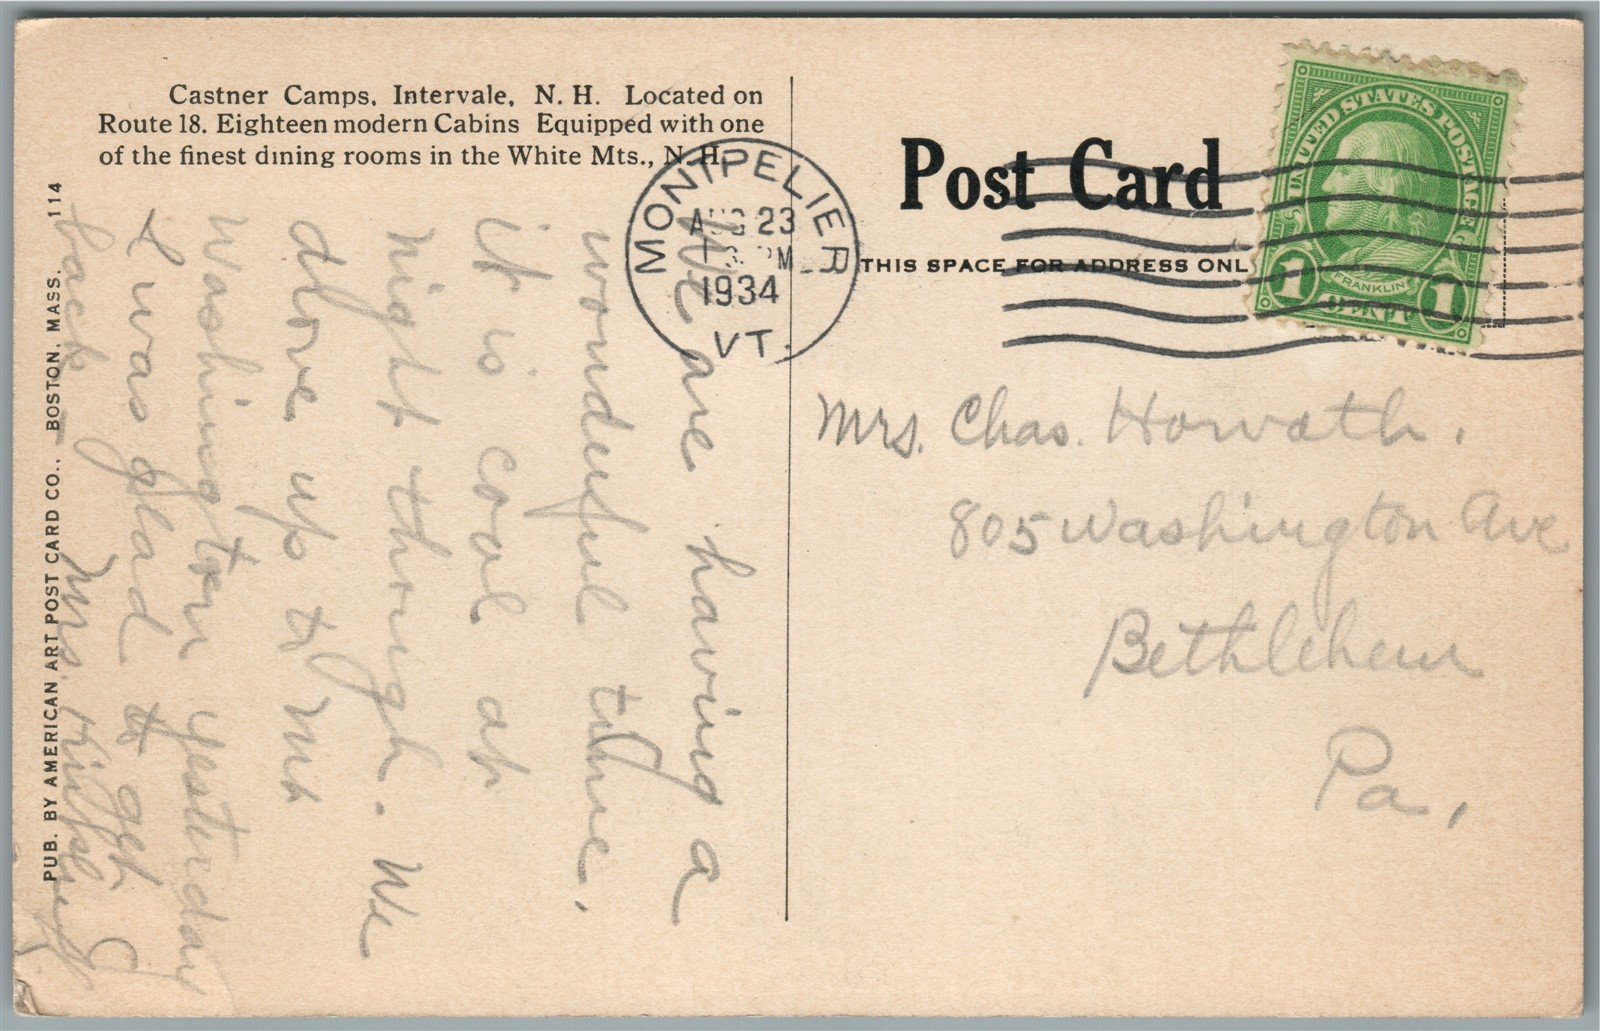 Castner Camps, Intervale, N. H. Located on
Route 18. Eighteen modern Cabins Equipped with one
of the finest dining rooms in the White Mts., N. H.
MONTPELIER
AUG 23
PM
1934
VT.
Post Card
THIS SPACE FOR ADDRESS ONL
UNITED STATES POSTAGE
FRANKLIN
1 CENT 1
Mrs. Chas. Horvath.
805 Washington Ave
Bethlehem
Pa.
We are having a
wonderful time.
it is cool at
night though. We
drove up to Mt
Washington yesterday
I was glad to get
back - Mrs.
PUB. BY AMERICAN ART POST CARD CO., BOSTON, MASS. 114